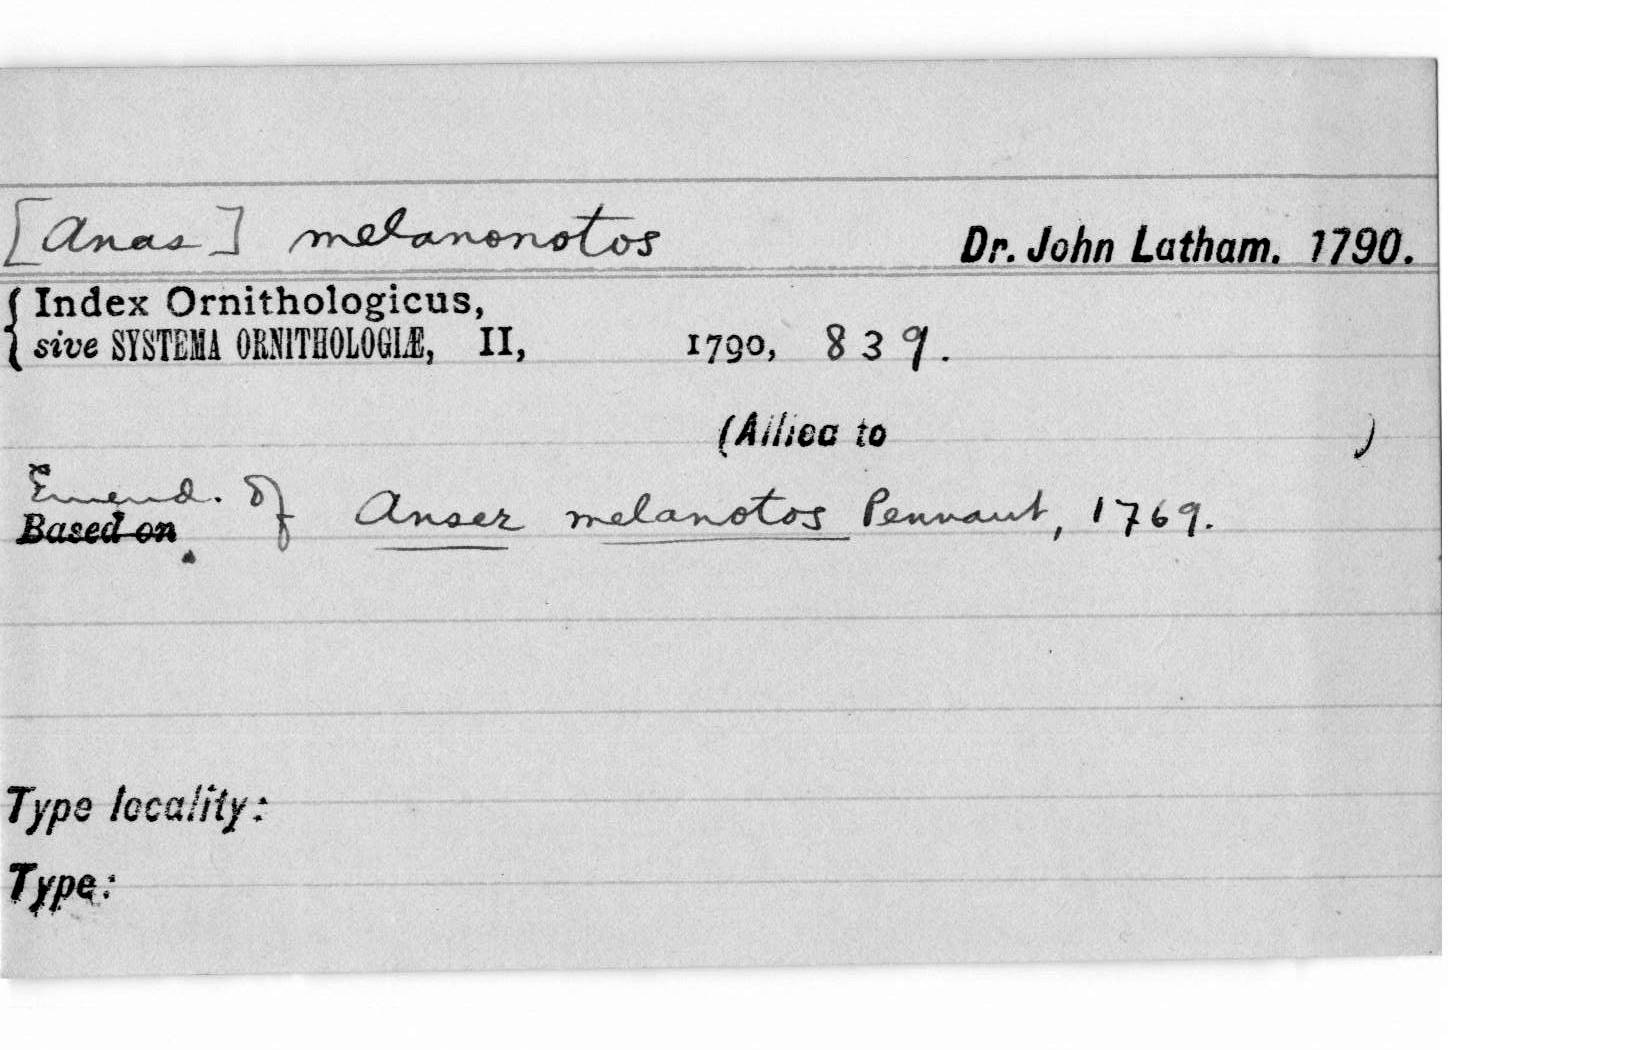 [Anas] melanonotos Dr. John Latham. 1790.
{ Index Ornithologicus,
sive SYSTEMA ORNITHOLOGIÆ, II, 1790, 839.
(Allied to )
Emend. of Anser melanotos Pennant, 1769.
Based on
Type locality:
Type: